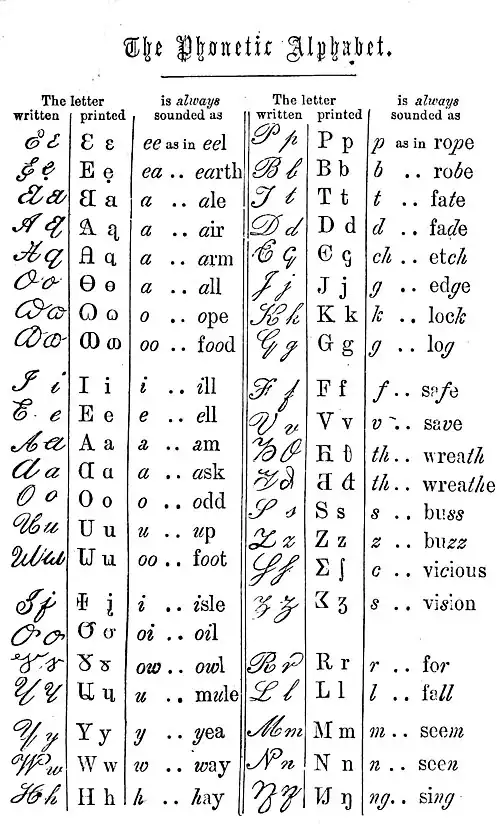 The Phonetic Alphabet.
The letter is always The letter is always
written printed sounded as written printed sounded as
Ɛ ɛ Ɛ ɛ ee as in eel
E ẹ E ẹ ea .. earth
a .. ale
a .. air
a .. arm
Ɵ ɵ a .. all
o .. ope
oo .. food
I i I i i .. ill
E e E e e .. ell
A a A a a .. am
Ɑ ɑ Ɑ ɑ a .. ask
O o O o o .. odd
U u U u u .. up
oo .. foot
i .. isle
oi .. oil
Ȣ ȣ Ȣ ȣ ow .. owl
u .. mule
Y y Y y y .. yea
W w W w w .. way
H h H h h .. hay
P p P p p as in rope
B b B b b .. robe
T t T t t .. fate
D d D d d .. fade
ch .. etch
J j J j g .. edge
K k K k k .. lock
G g G g g .. log
F f F f f .. safe
V v V v v .. save
th .. wreath
th .. wreathe
S s S s s .. buss
Z z Z z z .. buzz
Σ ʃ c .. vicious
Ʒ ʒ s .. vision
R r R r r .. for
L l L l l .. fall
M m M m m .. seem
N n N n n .. seen
ŋ ng .. sing